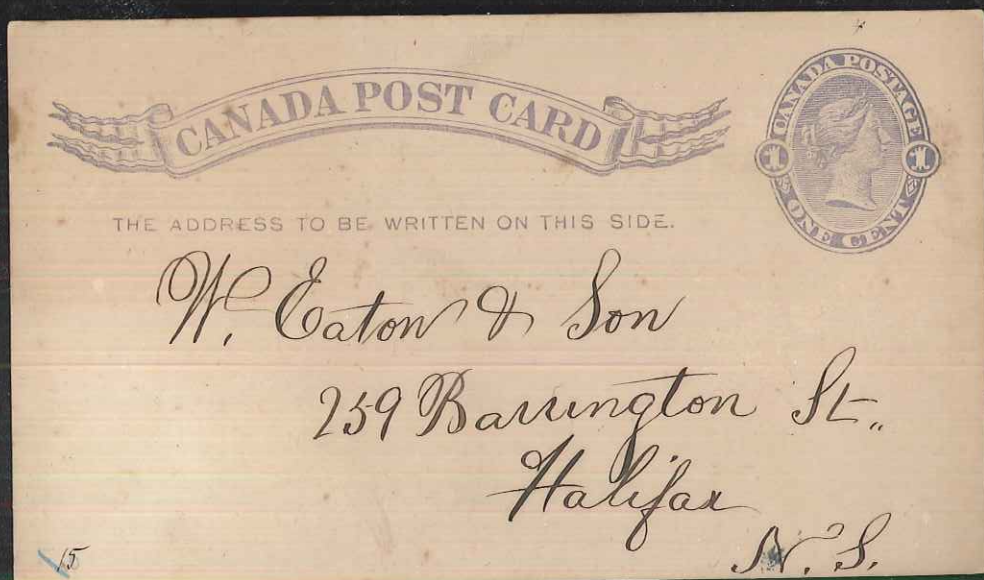 CANADA POST CARD
CANADA POSTAGE
1 1
ONE CENT
THE ADDRESS TO BE WRITTEN ON THIS SIDE.
W. Eaton & Son
259 Barrington St.,
Halifax
N.S.
15